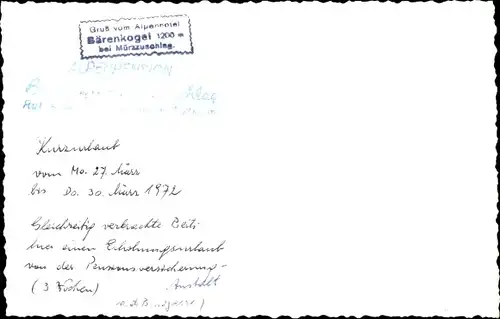 Gruß vom Alpenhotel
Bärenkogel 1200 m
bei Mürzzuschlag.
Kurzurlaub
vom Mo. 27. März
bis Do. 30. März 1972
Gleichzeitig verbrachte Berti
hier einen Erholungsurlaub
von der Pensionsversicherung-
(3 Wochen) Anstalt